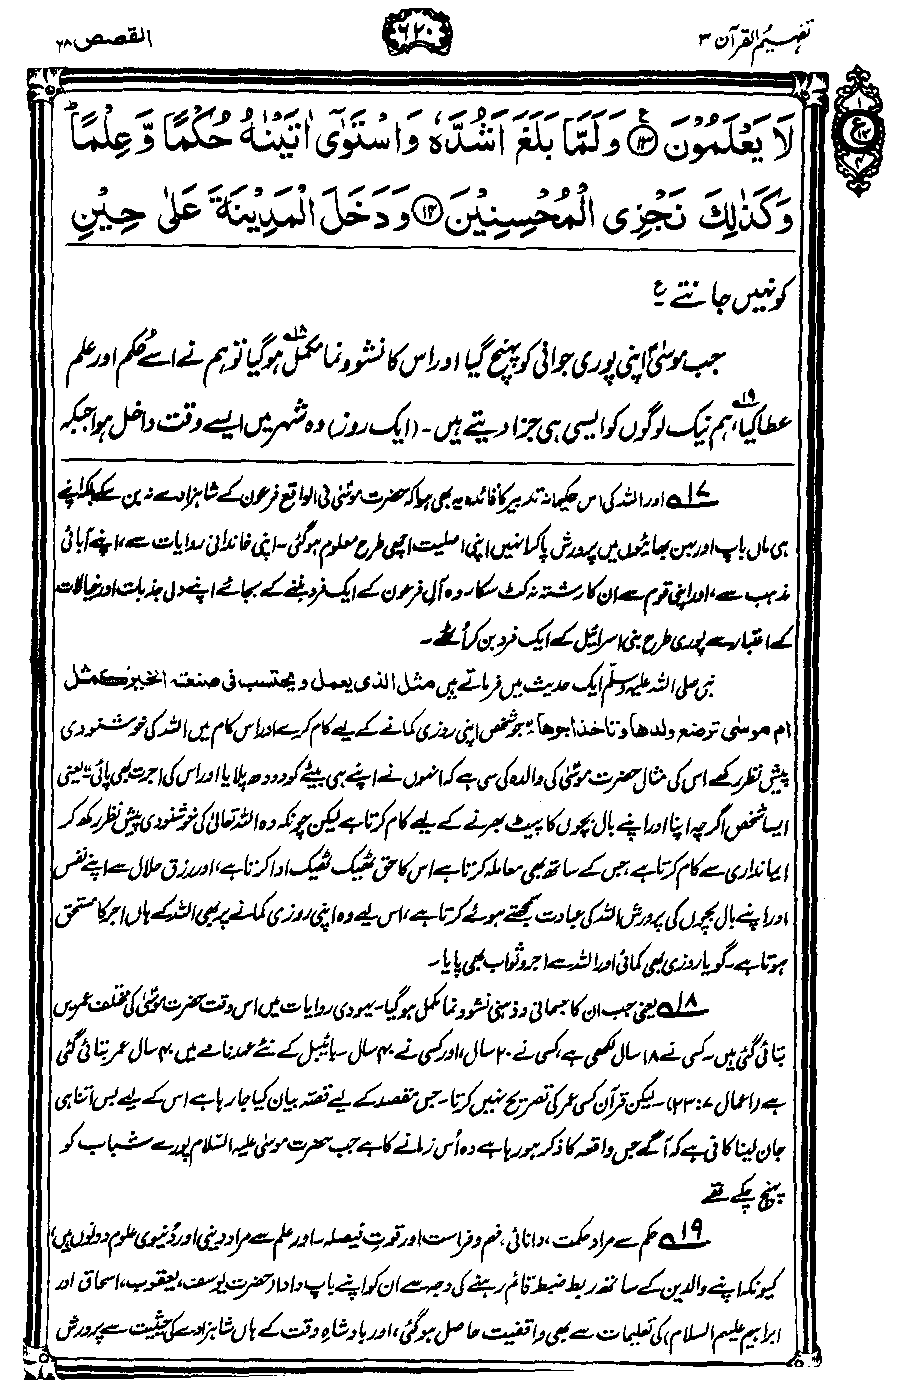 تفہیم القرآن ۳
۶۲۰
القصص ۲۸
لَا يَعْلَمُوْنَ ﴿۱۳﴾ وَلَمَّا بَلَغَ اَشُدَّهٗ وَاسْتَوٰٓى اٰتَيْنٰهُ حُكْمًا وَّعِلْمًا ؕ
وَكَذٰلِكَ نَجْزِى الْمُحْسِنِيْنَ ﴿۱۴﴾ وَدَخَلَ الْمَدِيْنَةَ عَلٰى حِيْنِ
کو نہیں جانتے ؏
جب موسیٰؑ اپنی پوری جوانی کو پہنچ گیا اور اس کا نشوونما مکمل ہوگیا ۱۸ تو ہم نے اسے حُکم اور علم
عطا کیا ۱۹، ہم نیک لوگوں کو ایسی ہی جزا دیتے ہیں۔ (ایک روز) وہ شہر میں ایسے وقت داخل ہوا جبکہ
۱۷ اور اللہ کی اس حکیمانہ تدبیر کا فائدہ یہ بھی ہوا کہ حضرت موسیٰؑ فی الواقع فرعون کے شاہزادے نہ بن سکے بلکہ اپنے
ہی ماں باپ اور بہن بھائیوں میں پرورش پا کر انہیں اپنی اصلیت اچھی طرح معلوم ہوگئی۔ اپنی خاندانی روایات سے، اپنے آبائی
مذہب سے، اور اپنی قوم سے ان کا رشتہ نہ کٹ سکا۔ وہ آلِ فرعون کے ایک فرد بننے کے بجائے اپنے دلی جذبات اور خیالات
کے اعتبار سے پوری طرح بنی اسرائیل کے ایک فرد بن کر اُٹھے۔
نبی صلی اللہ علیہ وسلم ایک حدیث میں فرماتے ہیں مثل الذی یعمل ویحتسب فی صنعتہ الخیر کمثل
ام موسٰی ترضع ولدھا وتاخذ اجرھا۔ "جو شخص اپنی روزی کمانے کے لیے کام کرے اور اس کام میں اللہ کی خوشنودی
پیشِ نظر رکھے اس کی مثال حضرت موسیٰؑ کی والدہ کی سی ہے کہ انہوں نے اپنے ہی بیٹے کو دودھ پلایا اور اس کی اجرت بھی پائی"۔ یعنی
ایسا شخص اگرچہ اپنا اور اپنے بال بچوں کا پیٹ بھرنے کے لیے کام کرتا ہے لیکن چونکہ وہ اللہ تعالیٰ کی خوشنودی پیش نظر رکھ کر
ایمانداری سے کام کرتا ہے، جس کے ساتھ بھی معاملہ کرتا ہے اس کا حق ٹھیک ٹھیک ادا کرتا ہے، اور رزق حلال سے اپنے نفس
اور اپنے بال بچوں کی پرورش اللہ کی عبادت سمجھتے ہوئے کرتا ہے، اس لیے وہ اپنی روزی کمانے پر بھی اللہ کے ہاں اجر کا مستحق
ہوتا ہے۔ گویا روزی بھی کمائی اور اللہ سے اجر و ثواب بھی پایا۔
۱۸ یعنی جب ان کا جسمانی و ذہنی نشوونما مکمل ہوگیا۔ یہودی روایات میں اس وقت حضرت موسیٰؑ کی مختلف عمریں
بتائی گئی ہیں۔ کسی نے ۱۸ سال لکھی ہے، کسی نے ۲۰ سال، اور کسی نے ۴۰ سال۔ بائیبل کے نئے عہد نامے میں ۴۰ سال عمر بتائی گئی
ہے (اعمال ۷:۲۳)۔ لیکن قرآن کسی عمر کی تصریح نہیں کرتا۔ جس مقصد کے لیے قصہ بیان کیا جا رہا ہے اس کے لیے بس اتنا ہی
جان لینا کافی ہے کہ آگے جس واقعہ کا ذکر ہو رہا ہے وہ اُس زمانے کا ہے جب حضرت موسیٰ علیہ السلام پورے شباب کو
پہنچ چکے تھے
۱۹ حکم سے مراد حکمت، دانائی، فہم و فراست اور قوتِ فیصلہ۔ اور علم سے مراد دینی اور دُنیوی علوم دونوں ہیں،
کیونکہ اپنے والدین کے ساتھ ربط ضبط قائم رہنے کی وجہ سے ان کو اپنے باپ دادا (حضرت یوسف، یعقوب، اسحاق اور
ابراہیم علیہم السلام) کی تعلیمات سے بھی واقفیت حاصل ہوگئی، اور بادشاہِ وقت کے ہاں شاہزادے کی حیثیت سے پرورش